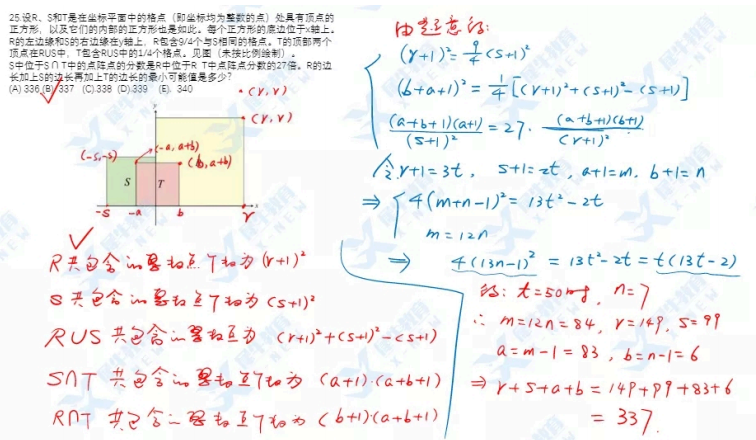 25.设R、S和T是在坐标平面中的格点（即坐标均为整数的点）处具有顶点的
正方形，以及它们的内部的正方形也是如此。每个正方形的底边位于x轴上。
R的左边缘和S的右边缘在y轴上，R包含9/4个与S相同的格点。T的顶部两个
顶点在RUS中，T包含RUS中的1/4个格点。见图（未按比例绘制）。
S中位于S∩T中的点阵点的分数是R中位于R T中点阵点分数的27倍。R的边
长加上S的边长再加上T的边长的最小可能值是多少?
(A) 336 (B) 337 (C).338 (D).339 (E). 340
y
(r,r)
(r,r)
(-s,-s)
(-a,a+b)
(b,a+b)
S
T
-s
-a
b
r
R共包含的整数点个数为(r+1)²
S共包含的整数点个数为(s+1)²
RUS共包含的整数点个数为 (r+1)²+(s+1)²-(s+1)
S∩T共包含的整数点个数为 (a+1)·(a+b+1)
R∩T共包含的整数点个数为 (b+1)·(a+b+1)
由题意得:
(r+1)²=9/4(s+1)²
(b+a+1)²=1/4[(r+1)²+(s+1)²-(s+1)]
(a+b+1)(a+1)/(s+1)²=27·(a+b+1)(b+1)/(r+1)²
令r+1=3t, s+1=2t, a+1=m, b+1=n
⇒ 4(m+n-1)²=13t²-2t
m=12n
⇒ 4(13n-1)²=13t²-2t=t(13t-2)
得: t=50 n=7
∴ m=12n=84, r=149, s=99
a=m-1=83, b=n-1=6
⇒ r+s+a+b=149+99+83+6
=337.